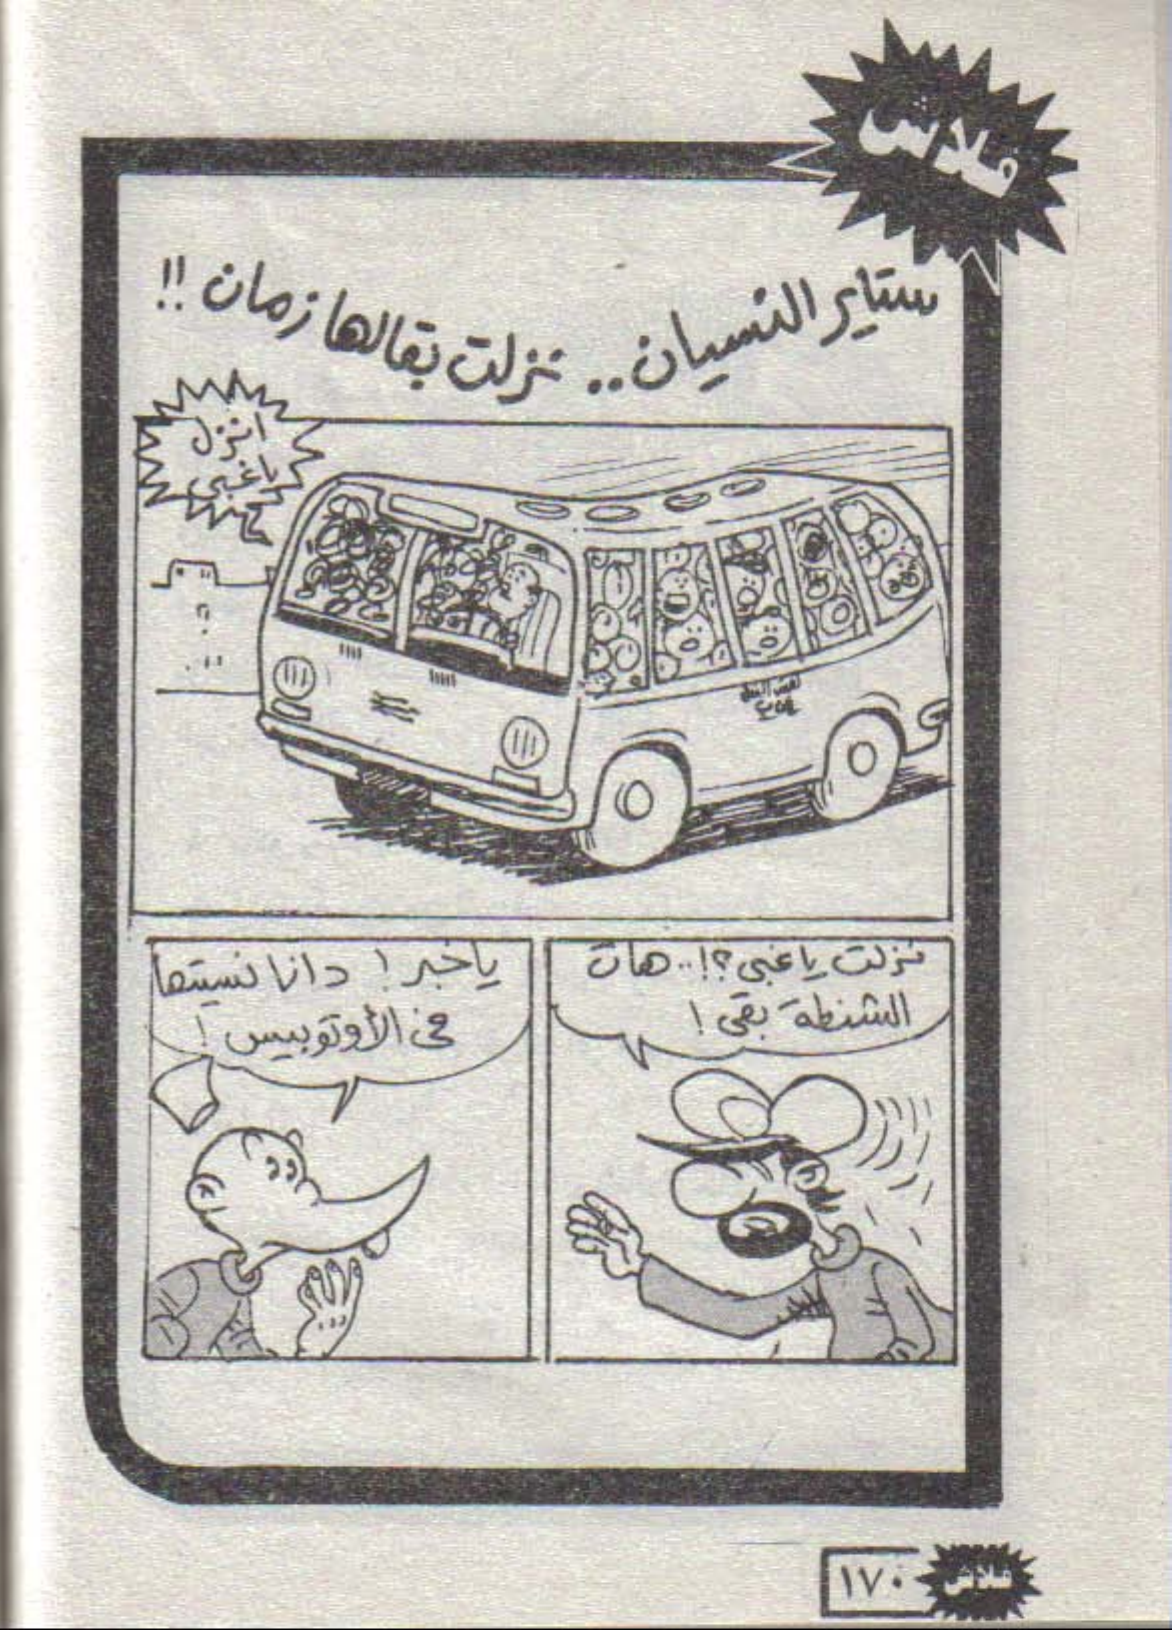 فلاش
ستاير النسيان.. نزلت بقالها زمان !!
انزل
ياغبى
نزلت ياغبى ؟!.. هات
الشنطة بقى !
ياخبر ! دانا نسيتها
فى الأوتوبيس !
١٧٠
فلاش